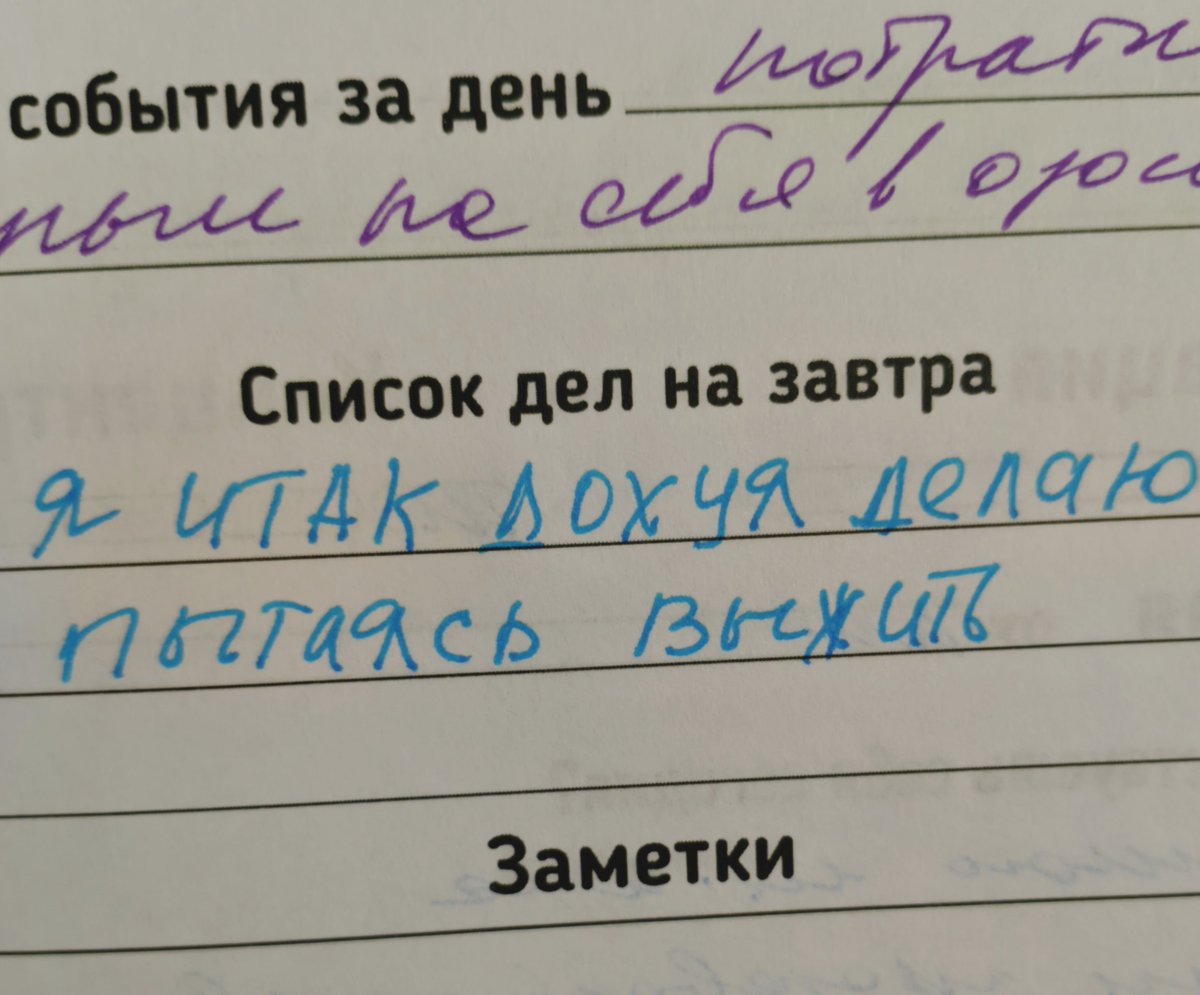 события за день потрати
ных на себя в ожи
Список дел на завтра
я итак дохуя делаю
пытаясь выжить
Заметки